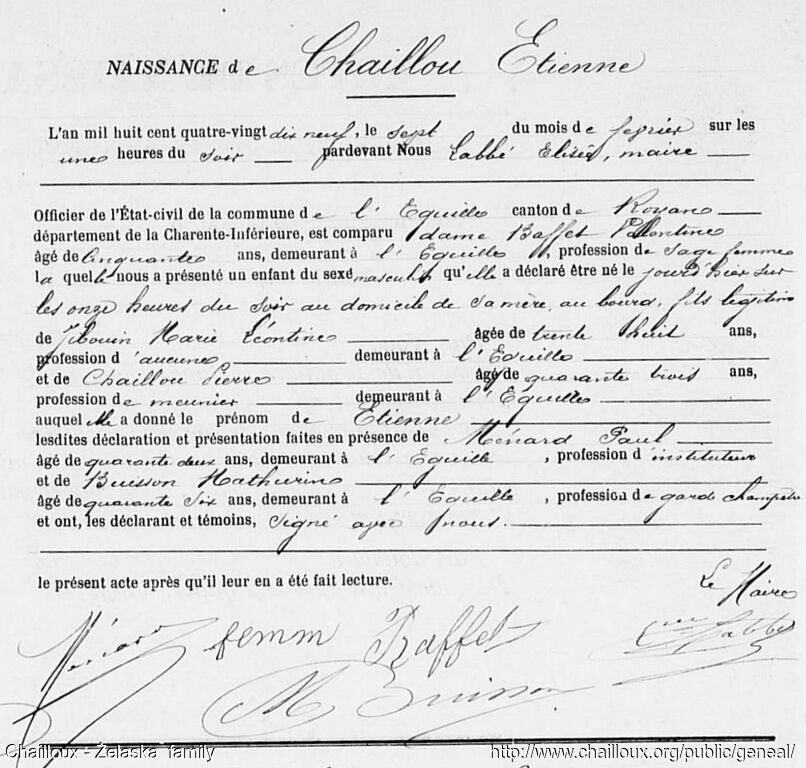 NAISSANCE de Chaillou Etienne
L'an mil huit cent quatre-vingt dix neuf, le sept du mois de fevrier sur les
une heures du soir pardevant Nous Labbé Elisée, maire
Officier de l'État-civil de la commune de l'Eguille canton de Royan
département de la Charente-Inférieure, est comparu dame Baffet
âgé de Cinquante ans, demeurant à l'Eguille, profession de sage femme
la quelle nous a présenté un enfant du sexe masculin qu'elle a déclaré être né le jour d'hier sur
les onze heures du soir au domicile de sa mère, au bourg, fils légitime
de Jibouin Marie Léontine âgée de trente huit ans,
profession d'aucune demeurant à l'Eguille
et de Chaillou Pierre âgé de quarante trois ans,
profession de meunier demeurant à l'Eguille
auquel elle a donné le prénom de Etienne
lesdites déclaration et présentation faites en présence de Ménard Paul
âgé de quarante deux ans, demeurant à l'Eguille, profession d'instituteur
et de Buisson Mathurin
âgé de quarante six ans, demeurant à l'Eguille, profession de garde champêtre
et ont, les déclarant et témoins, signé avec nous.
le présent acte après qu'il leur en a été fait lecture.
Le Maire
Ménard femm Baffet Labbé
M Buisson
Chailloux - Zelaska family http://www.chailloux.org/public/geneal/